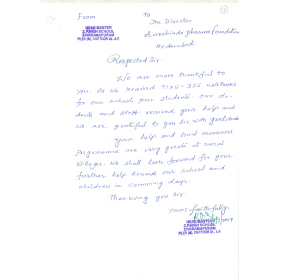 From
To
The Director
Aurobindo pharma foundation
Hyderabad
HEAD MASTER
Z.P.HIGH SCHOOL
PILER (M), CHITTOOR Dt., A.P.
Respected Sir,
We are more thankful to
you. As we received 71x5=355 notebooks
for our school poor students. Our stu-
dents and staff received your help and
we are grateful to you Sir, with gratitude
your help and social awareness
programmes are very great at rural
villages. We shall look forward for your
further help towards our school and
children in comming days.
Thanking you Sir.
Yours faithfully,
HEAD MASTER
Z.P.HIGH SCHOOL
PILER (M) CHITTOOR Dt., A.P.